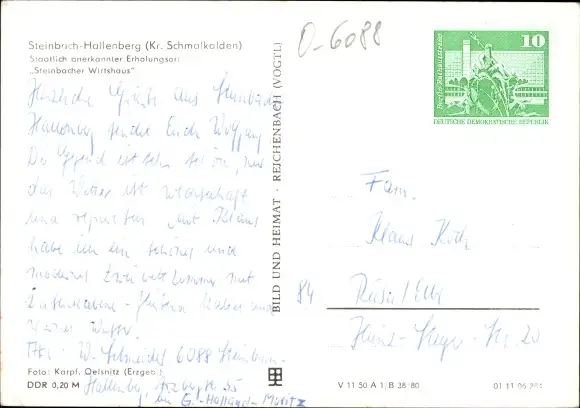 O-6088
Steinbach-Hallenberg (Kr. Schmalkalden)
Staatlich anerkannter Erholungsort
„Steinbacher Wirtshaus"
10
Berlin, Rathausstraße
DEUTSCHE DEMOKRATISCHE REPUBLIK
Herzliche Grüße aus Steinbach
Hallenberg sendet Euch Wolfgang
Die Gegend ist sehr schön, nur
das Wetter ist
und Mit Klaus
habe ich ein schönes und
modernes Zweibettzimmer mit
und
Warm Wasser.
W. Schneider 6088 Steinbach-
Hallenberg, 35
bei G. Holland-Moritz
BILD UND HEIMAT · REICHENBACH (VOGTL)
Fam.
Klaus Koch
84 Riesa/Elbe
Str. 20
Foto: Karpf, Oelsnitz (Erzgeb.)
DDR 0,20 M
V 11 50 A 1/B 38/80
01 11 06 284